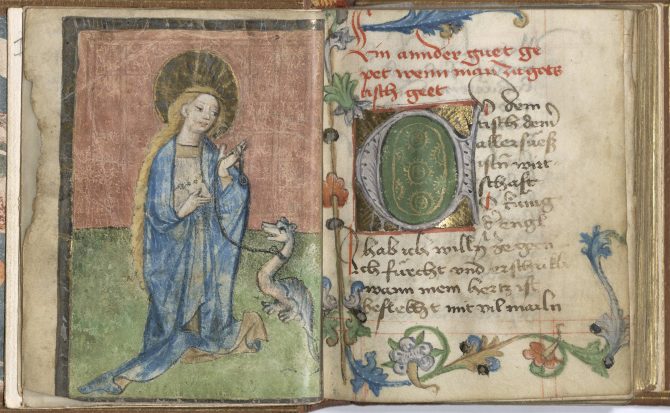 Ein annder guet ge
pet wenn man zu gots
tisch geet
dem
tisch dem
allersuess
istn wirt
schafft
O kunig
der engl
hab ich willn ze gen
ich furcht und erschrikh
wann mein hertz ist
beflekht mit vil mailn